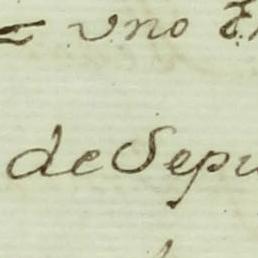 = uno
de Sepu